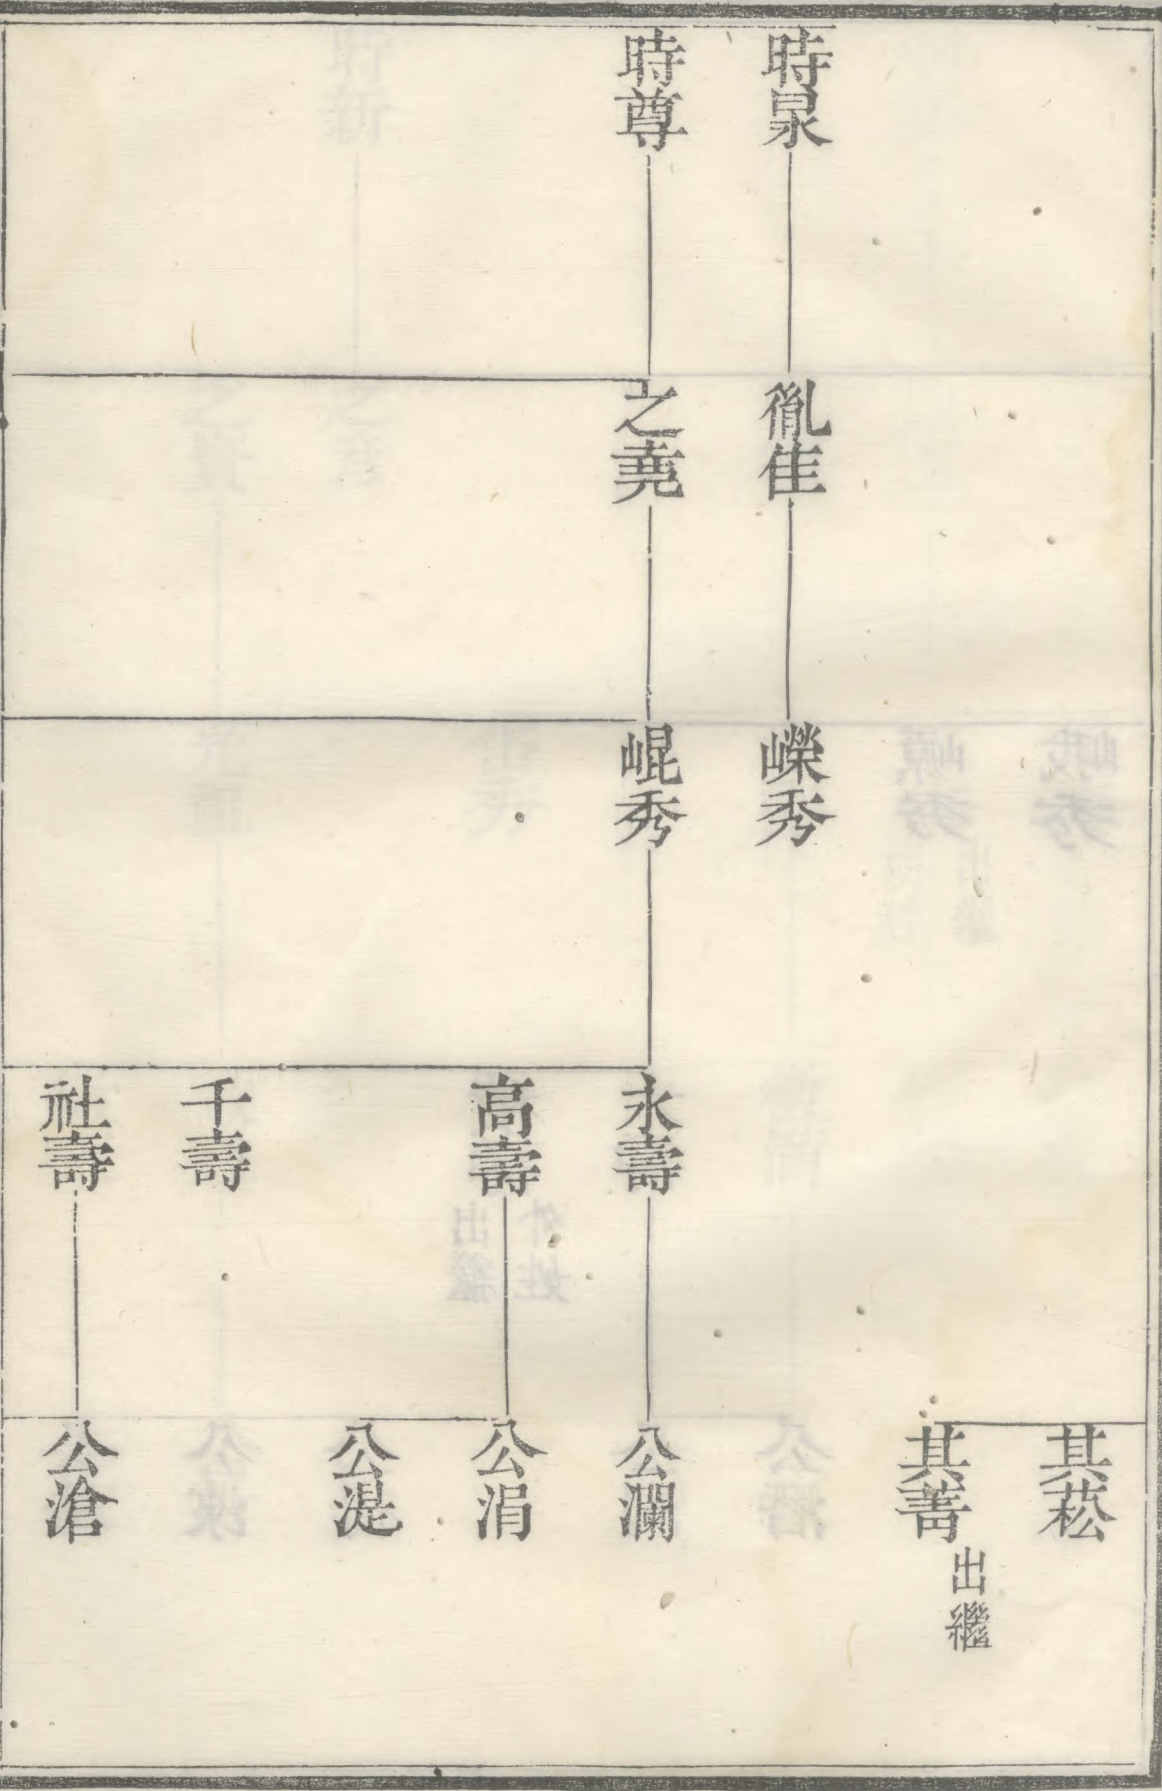 時泉
時尊
胤佳
之堯
嶸秀
崐秀
永壽
高壽
千壽
社壽
其菘
其菁
出繼
公瀾
公涓
公湜
公滄